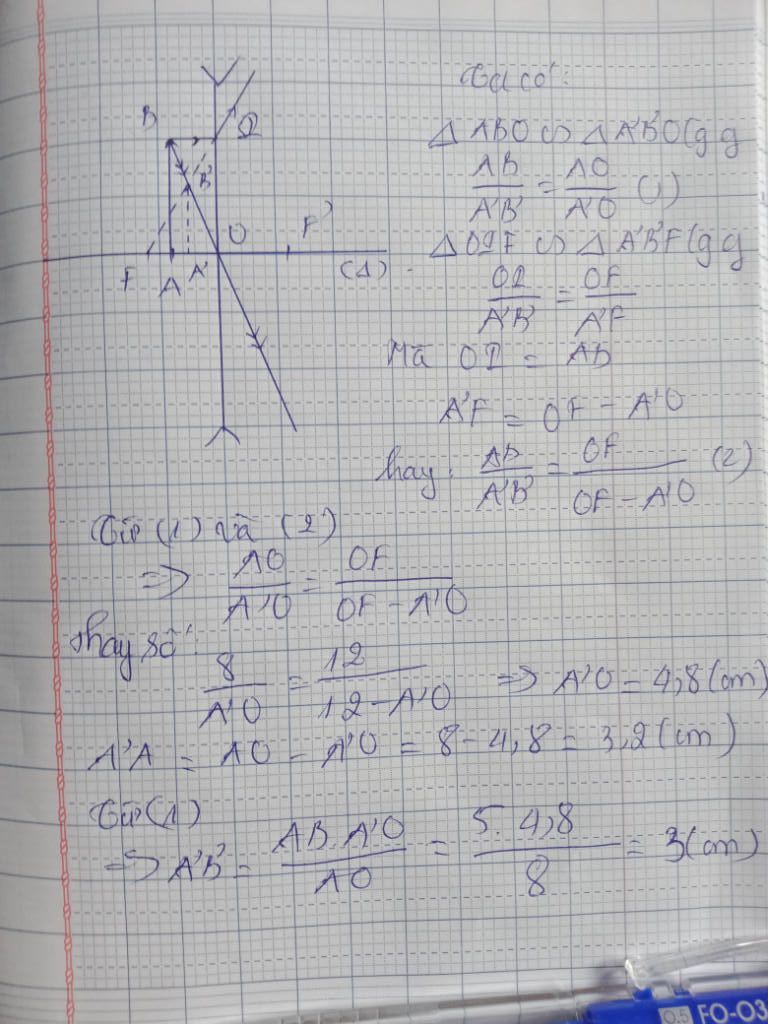 B
I
B'
O
F'
F
A
A'
(Δ)
Ta có:
Δ ABO ∽ Δ A'B'O (g g
AB/A'B' = AO/A'O (1)
Δ OIF ∽ Δ A'B'F (g g
OI/A'B' = OF/A'F
Mà OI = AB
A'F = OF - A'O
hay: AB/A'B' = OF/(OF - A'O) (2)
Từ (1) và (2)
=> AO/A'O = OF/(OF - A'O)
Thay số:
8/A'O = 12/(12 - A'O) => A'O = 4,8 (cm)
A'A = AO - A'O = 8 - 4,8 = 3,2 (cm)
Từ (1)
=> A'B' = AB. A'O/AO = 5. 4,8/8 = 3 (cm)
0.5 FO-03